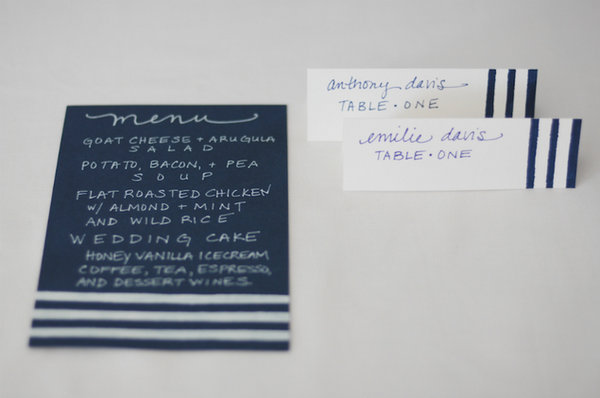 menu
GOAT CHEESE + ARUGULA
SALAD
POTATO, BACON, + PEA
SOUP
FLAT ROASTED CHICKEN
W/ ALMOND + MINT
AND WILD RICE
WEDDING CAKE
HONEY VANILLA ICECREAM
COFFEE, TEA, ESPRESSO,
AND DESSERT WINES
anthony davis
TABLE · ONE
emilie davis
TABLE · ONE